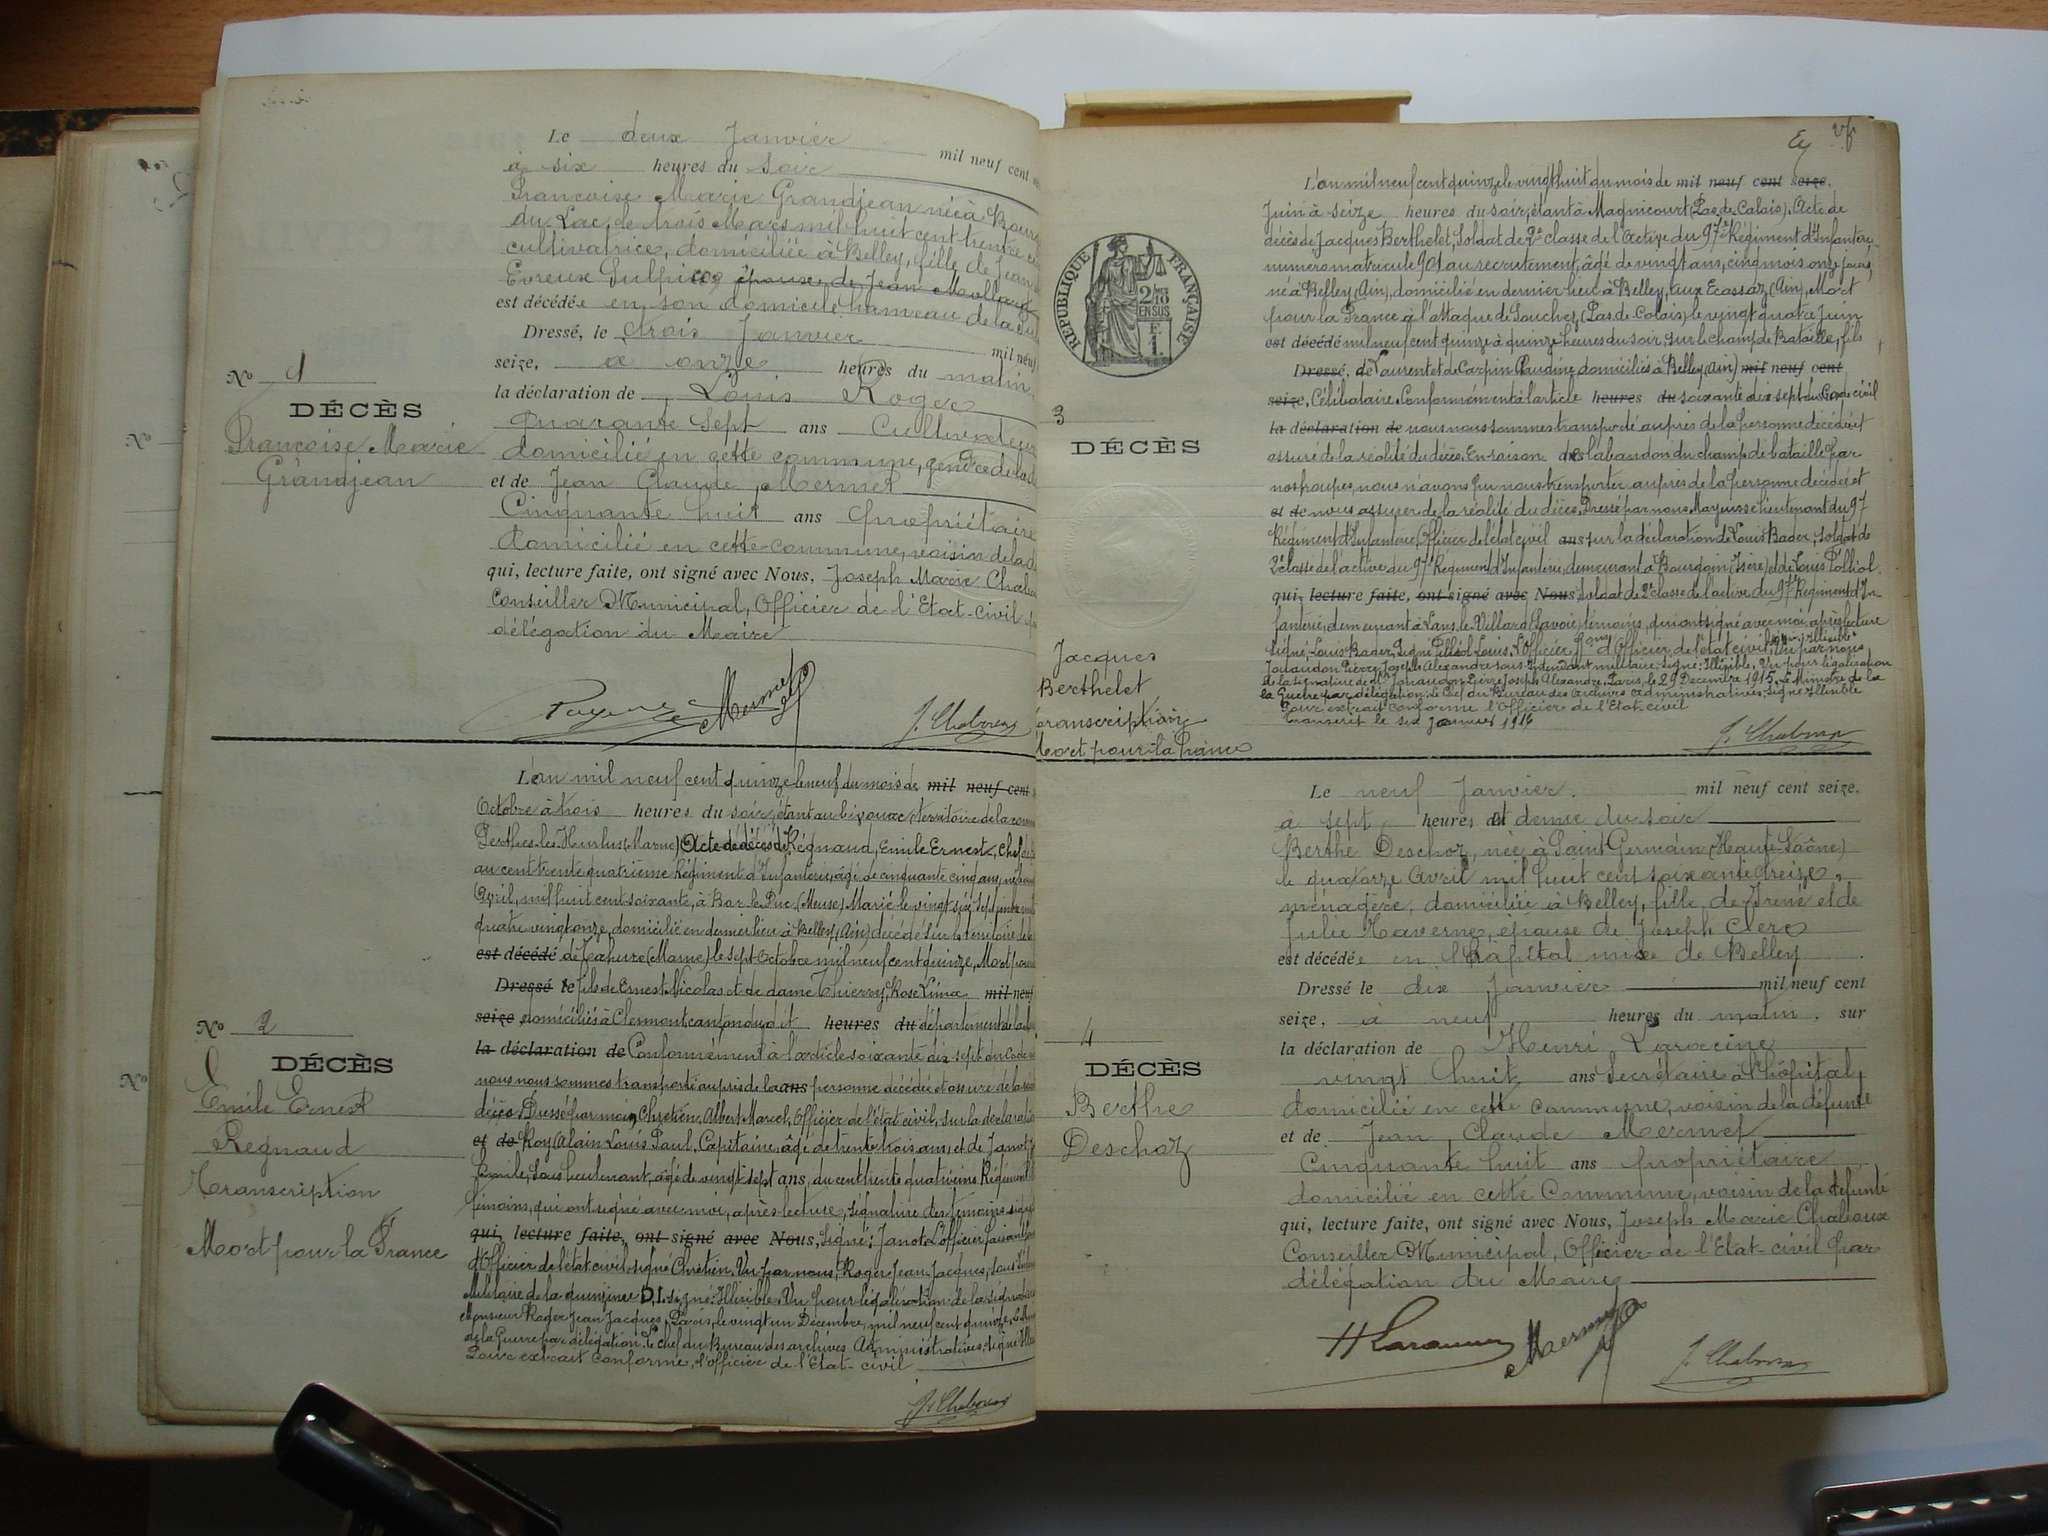 Le deux Janvier mil neuf cent
à six heures du soir
Françoise Marie Grandjean née à Bourg
du Lac, le trois Mars mil huit cent trente
cultivatrice, domiciliée à Belley, fille de Jean
épouse de Jean Mollard
est décédée en son domicile hameau de la
Dressé, le trois Janvier mil neuf
seize, à onze heures du matin,
la déclaration de Louis Roger
Quarante sept ans Cultivateur
domicilié en cette commune, gendre de la
et de Jean Claude Mermet
Cinquante huit ans propriétaire
domicilié en cette commune, voisin de la
qui, lecture faite, ont signé avec Nous, Joseph Marie
Conseiller Municipal, Officier de l'Etat-civil
délégation du Maire
No 1
DÉCÈS
Françoise Marie
Grandjean
L'an mil neuf cent quinze le neuf du mois de mil neuf cent
Octobre à trois heures du soir, étant au bivouac, territoire de la
Perthes-les-Hurlus (Marne) Acte de décès de Régnaud, Emile Ernest, Chef
au cent trente quatrième Régiment d'Infanterie, âgé de cinquante cinq ans, né
Avril, mil huit cent soixante, à Bar-le-Duc (Meuse) Marié le vingt six Septembre
quatre vingt onze, domicilié en dernier lieu à Belley (Ain) décédé sur le territoire de
est décédé de Tahure (Marne) le sept Octobre mil neuf cent quinze, Mort pour
Dressé le fils de Ernest Nicolas et de dame Thierry, Rose Lima mil neuf
seize domiciliés à Clermont canton dudit heures du département de la
la déclaration de Conformément à l'article soixante dix sept du Code
nous nous sommes transporté auprès de la ans personne décédée et assuré de la
décès Dressé par moi, Chrétien, Albert Marcel, Officier de l'état civil, sur la déclaration
et de Roy Alain Louis Paul, Capitaine, âgé de trente trois ans, et de Janot
Emile, Sous lieutenant, âgé de vingt sept ans, du cent trente quatrième Régiment
témoins, qui ont signé avec moi, après lecture, Signature des témoins
qui, lecture faite, ont signé avec Nous, Signé: Janot L'officier faisant
d'Officier de l'état civil, signé Chrétien. Vu par nous, Roger Jean Jacques, Sous
Militaire de la quinzième D.I. signé: Illisible. Vu pour légalisation de la signature
Monsieur Roger Jean Jacques, Paris, le vingt un Décembre, mil neuf cent quinze,
de la Guerre par délégation. Le chef du Bureau des archives Administratives, signé
Pour extrait conforme, l'officier de l'Etat-civil
No 2
DÉCÈS
Emile Ernest
Regnaud
Transcription
Mort pour la France
L'an mil neuf cent quinze le vingt huit du mois de mil neuf cent seize.
Juin à seize heures du soir, étant à Magnicourt (Pas-de-Calais). Acte de
décès de Jacques Berthelet, Soldat de 2e classe de l'active du 97e Régiment d'Infanterie,
numéro matricule 901 au recrutement, âgé de vingt ans, cinq mois onze jours,
né à Belley (Ain), domicilié en dernier lieu à Belley, aux Ecassaz (Ain), Mort
pour la France à l'attaque de Souchez (Pas de Calais) le vingt quatre Juin
est décédé mil neuf cent quinze à quinze heures du soir, sur le champ de Bataille, fils
Dressé, de Laurent et de Carpin Claudine, domiciliés à Belley (Ain) mil neuf cent
seize, Célibataire. Conformément à l'article heures du soixante dix sept du Code civil
la déclaration de nous nous sommes transporté auprès de la personne décédée et
assuré de la réalité du décès. En raison de l'abandon du champ de bataille par
nos troupes, nous n'avons pu nous transporter auprès de la personne décédée et
et de nous assurer de la réalité du décès. Dressé par nous Lieutenant du 97
Régiment d'Infanterie Officier de l'état civil ans sur la déclaration de Louis Bader, Soldat de
2e classe de l'active du 97e Régiment d'Infanterie, demeurant à Bourgoin (Isère) et de Louis
qui, lecture faite, ont signé avec Nous, soldat de 2e classe de l'active du 97e Régiment d'In-
fanterie, demeurant à Lans-le-Villard (Savoie) témoins, qui ont signé avec moi, après lecture
Signé, Louis Bader, Signé Louis. L'Officier d'Officier de l'état civil, signé: illisible. Vu par nous
Pierre Joseph Alexandre sous-Intendant militaire, signé: Illisible. Vu pour légalisation
de la signature de Mr Pierre Joseph Alexandre. Paris, le 29 Décembre 1915. Le Ministre de la
la Guerre par délégation. Le Chef du Bureau des Archives administratives. signé Illisible
Pour extrait conforme l'Officier de l'Etat-civil
Transcrit le six Janvier 1916
RÉPUBLIQUE FRANÇAISE
2/10 EN SUS
3
DÉCÈS
Jacques
Berthelet
transcription
Mort pour la France
Le neuf Janvier. mil neuf cent seize.
à sept heures et demie du soir
Berthe Deschoz, née à Saint Germain (Haute-Saône)
le quatorze Avril mil huit cent soixante treize,
ménagère, domiciliée à Belley, fille de Irené et de
Julie Taverne, épouse de Joseph Clerc
est décédée en l'hôpital mixte de Belley
Dressé le dix Janvier mil neuf cent
seize, à neuf heures du matin, sur
la déclaration de Henri Laracine
vingt huit ans Secrétaire à l'hôpital
domicilié en cette commune, voisin de la défunte
et de Jean Claude Mermet
Cinquante huit ans propriétaire
domicilié en cette Commune, voisin de la défunte
qui, lecture faite, ont signé avec Nous, Joseph Marie Chaboux
Conseiller Municipal, Officier de l'Etat-civil par
délégation du Maire
H Laracine
4
DÉCÈS
Berthe
Deschoz